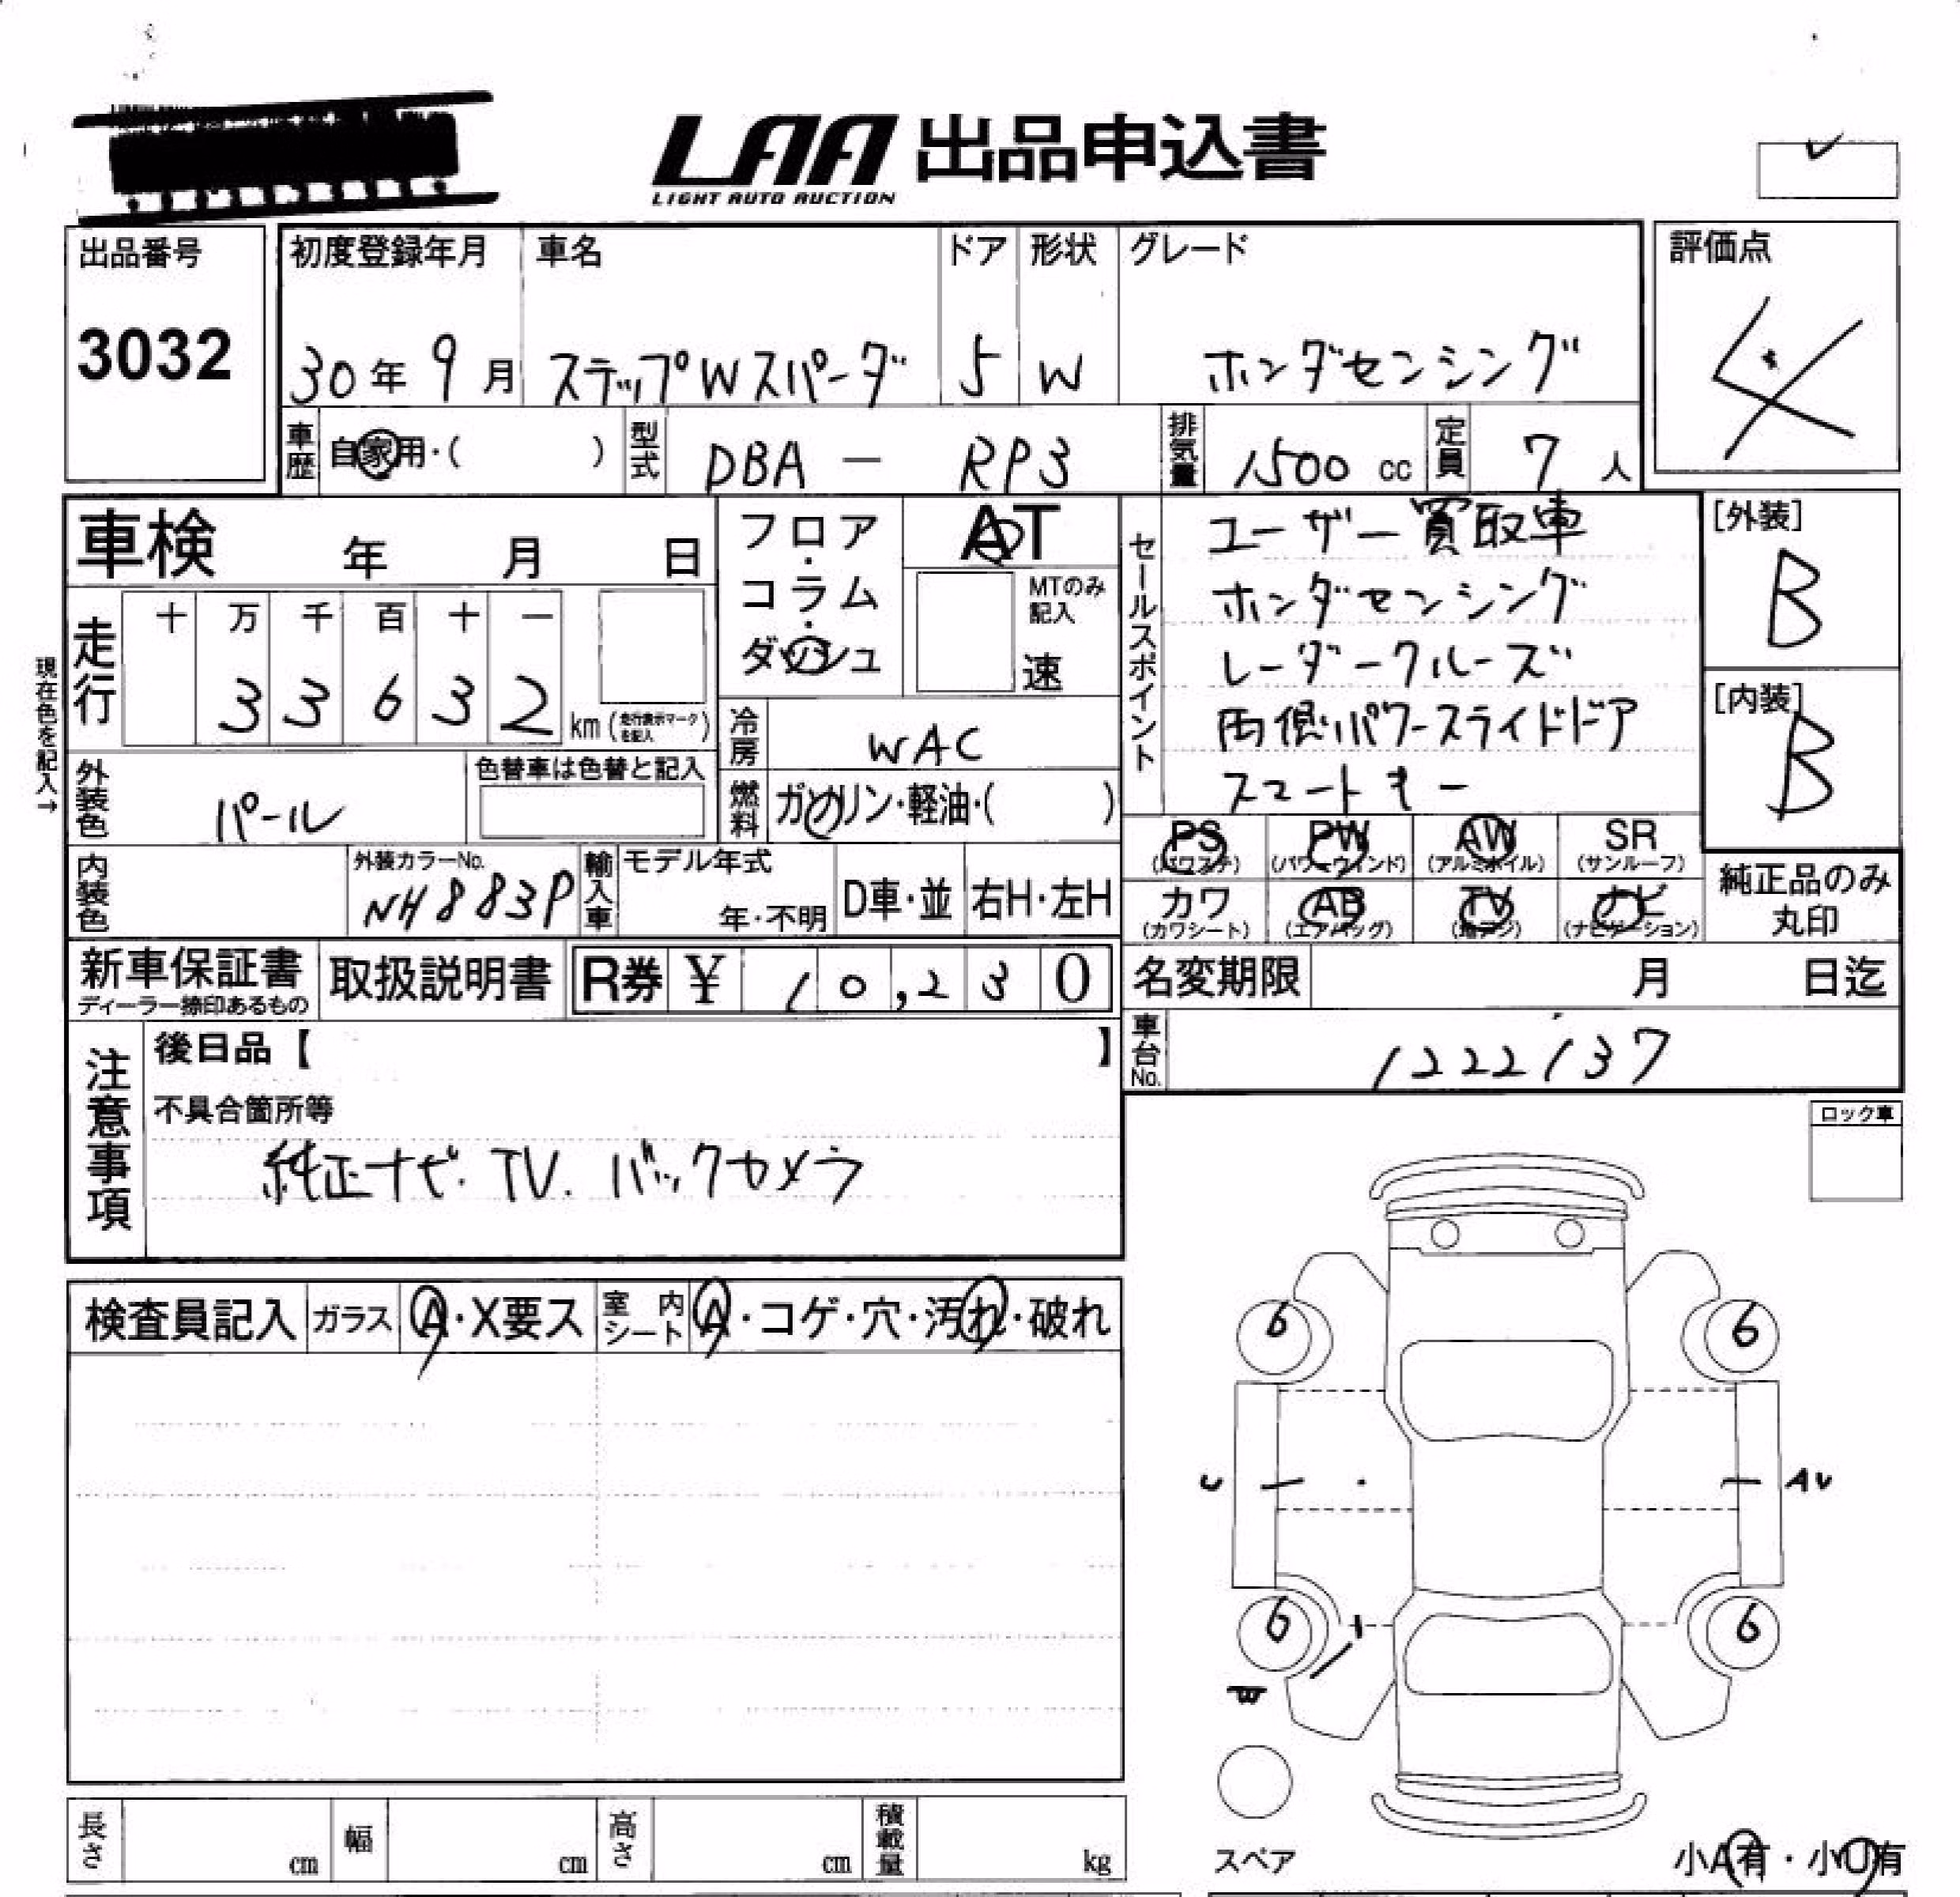 LAA 出品申込書
LIGHT AUTO AUCTION
出品番号
3032
初度登録年月
30年 9月
車名
ステップWスパーダ
ドア
5
形状
W
グレード
ホンダセンシング
評価点
4
車歴 自家用・( )
型式 DBA - RP3
排気量 1500 cc
定員 7 人
車検 年 月 日
フロア・コラム・ダッシュ
AT
MTのみ記入
速
セールスポイント
ユーザー買取車
ホンダセンシング
レーダークルーズ
両側パワースライドドア
スマートキー
[外装]
B
[内装]
B
現在色を記入→
走行
十 万 千 百 十 一
3 3 6 3 2 km (走行表示マークを記入)
冷房 WAC
燃料 ガソリン・軽油・( )
外装色 パール
色替車は色替と記入
内装色
外装カラーNo.
NH883P
輸入車
モデル年式
年・不明
D車・並
右H・左H
PS (パワステ)
PW (パワーウィンド)
AW (アルミホイル)
SR (サンルーフ)
カワ (カワシート)
AB (エアバッグ)
TV (地デジ)
ナビ (ナビゲーション)
純正品のみ丸印
新車保証書
ディーラー捺印あるもの
取扱説明書
R券 ¥ 10,230
名変期限 月 日迄
車台No. 1222137
注意事項
後日品【 】
不具合箇所等
純正ナビ. TV. バックカメラ
ロック車
検査員記入
ガラス A・X要ス
室内シート A・コゲ・穴・汚れ・破れ
6 6
U AU
6 6
W
スペア
小A有・小U有
長さ cm
幅 cm
高さ cm
積載量 kg